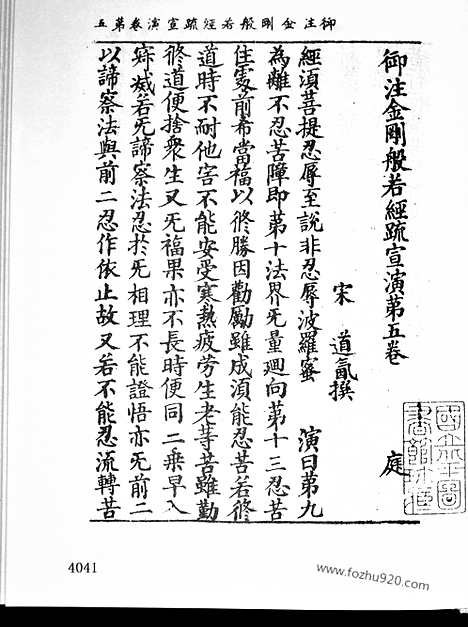 御注金剛般若經疏宣演卷第五
御注金剛般若經疏宣演第五卷
宋 道氤撰 庭
經須菩提忍辱至說非忍辱波羅蜜 演曰第九
為離不忍苦障即第十法界旡量廻向第十三忍苦
住處前希當福以修勝因勸勵雖成須能忍苦若修
道時不耐他害不能安受寒熱疲勞生老䓁苦雖勤
修道便捨衆生又旡福果亦不長時便同二乗早入
寂滅若旡諦察法忍於旡相理不能證悟亦旡前二
以諦察法與前二忍作依止故又若不能忍流轉苦
4041
www.fozhu920.com